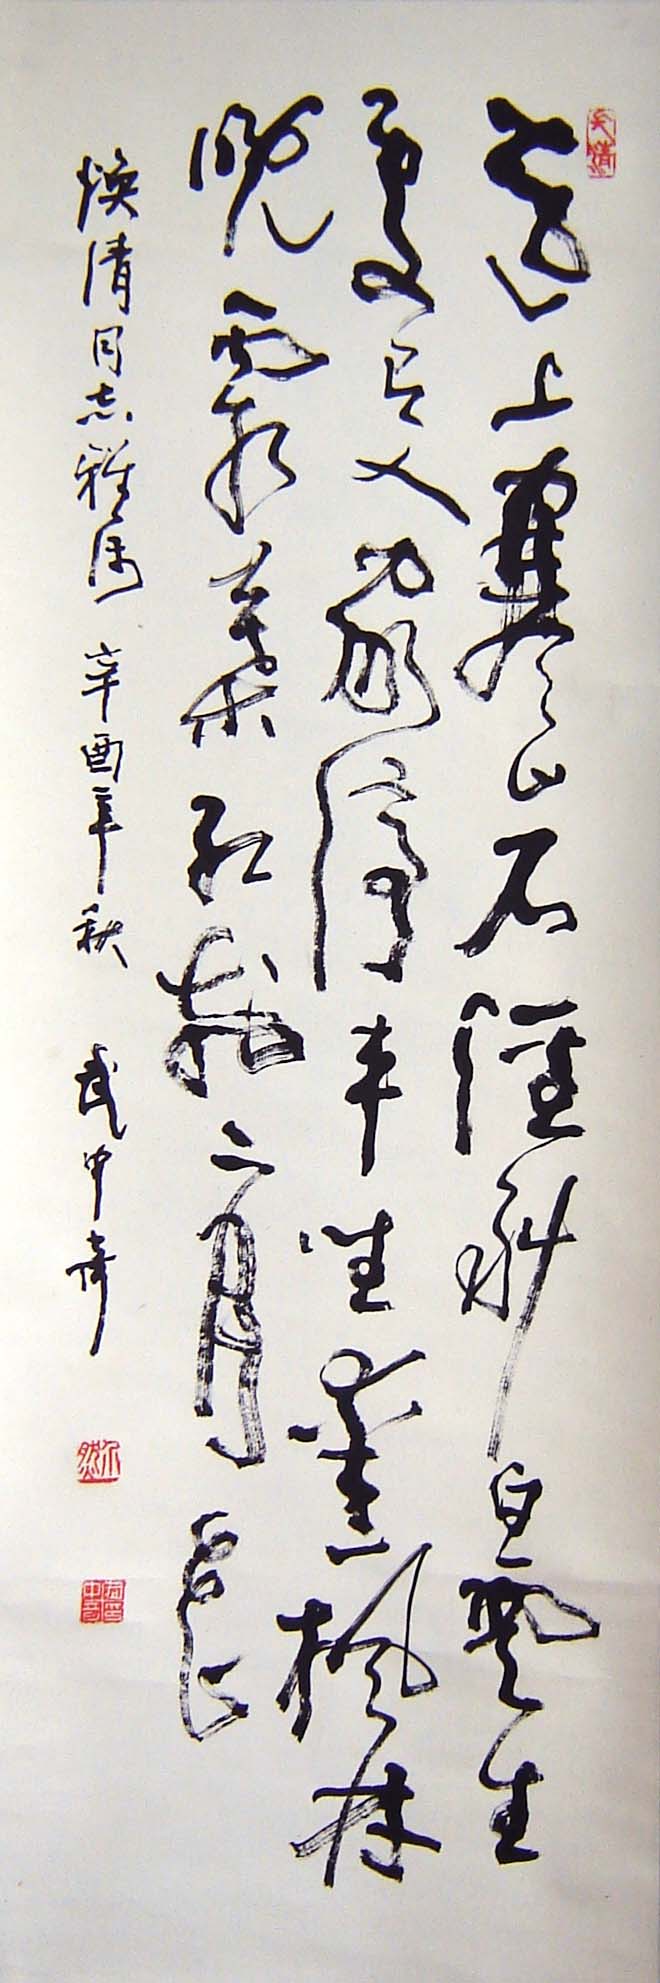 遠上寒山石徑斜白雲生
處有人家停車坐愛楓林
晚霜葉紅於二月花
焕清同志雅属 辛酉年秋 武中奇